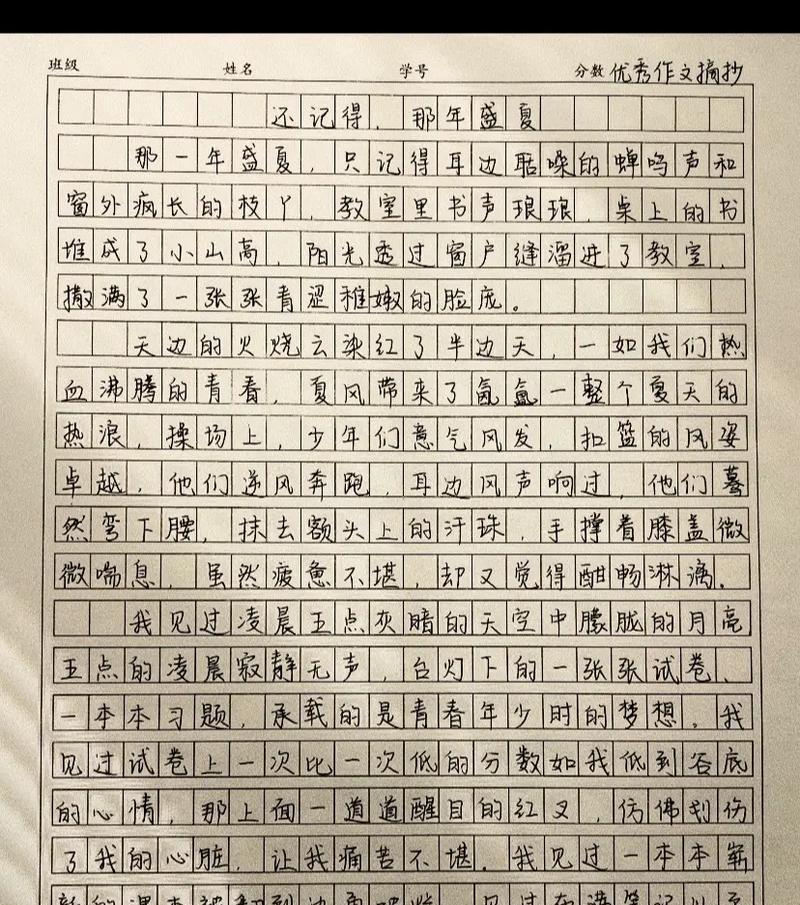 班级 姓名 学号 分数 优秀作文摘抄
还记得，那年盛夏
那一年盛夏，只记得耳边聒噪的蝉鸣声和
窗外疯长的枝丫，教室里书声琅琅，桌上的书
堆成了小山高，阳光透过窗户缝溜进了教室，
撒满了一张张青涩稚嫩的脸庞。
天边的火烧云染红了半边天，一如我们热
血沸腾的青春，夏风带来了氤氲一整个夏天的
热浪，操场上，少年们意气风发，扣篮的风姿
卓越，他们逆风奔跑，耳边风声响过，他们蓦
然弯下腰，抹去额头上的汗珠，手撑着膝盖微
微喘息，虽然疲惫不堪，却又觉得酣畅淋漓。
我见过凌晨五点灰暗的天空中朦胧的月亮
五点的凌晨寂静无声，台灯下的一张张试卷、
一本本习题，承载的是青春年少时的梦想。我
见过试卷上一次比一次低的分数如我低到谷底
的心情，那上面一道道醒目的红叉，仿佛划伤
了我的心脏，让我痛苦不堪。我见过一本本崭
新的课本被翻到